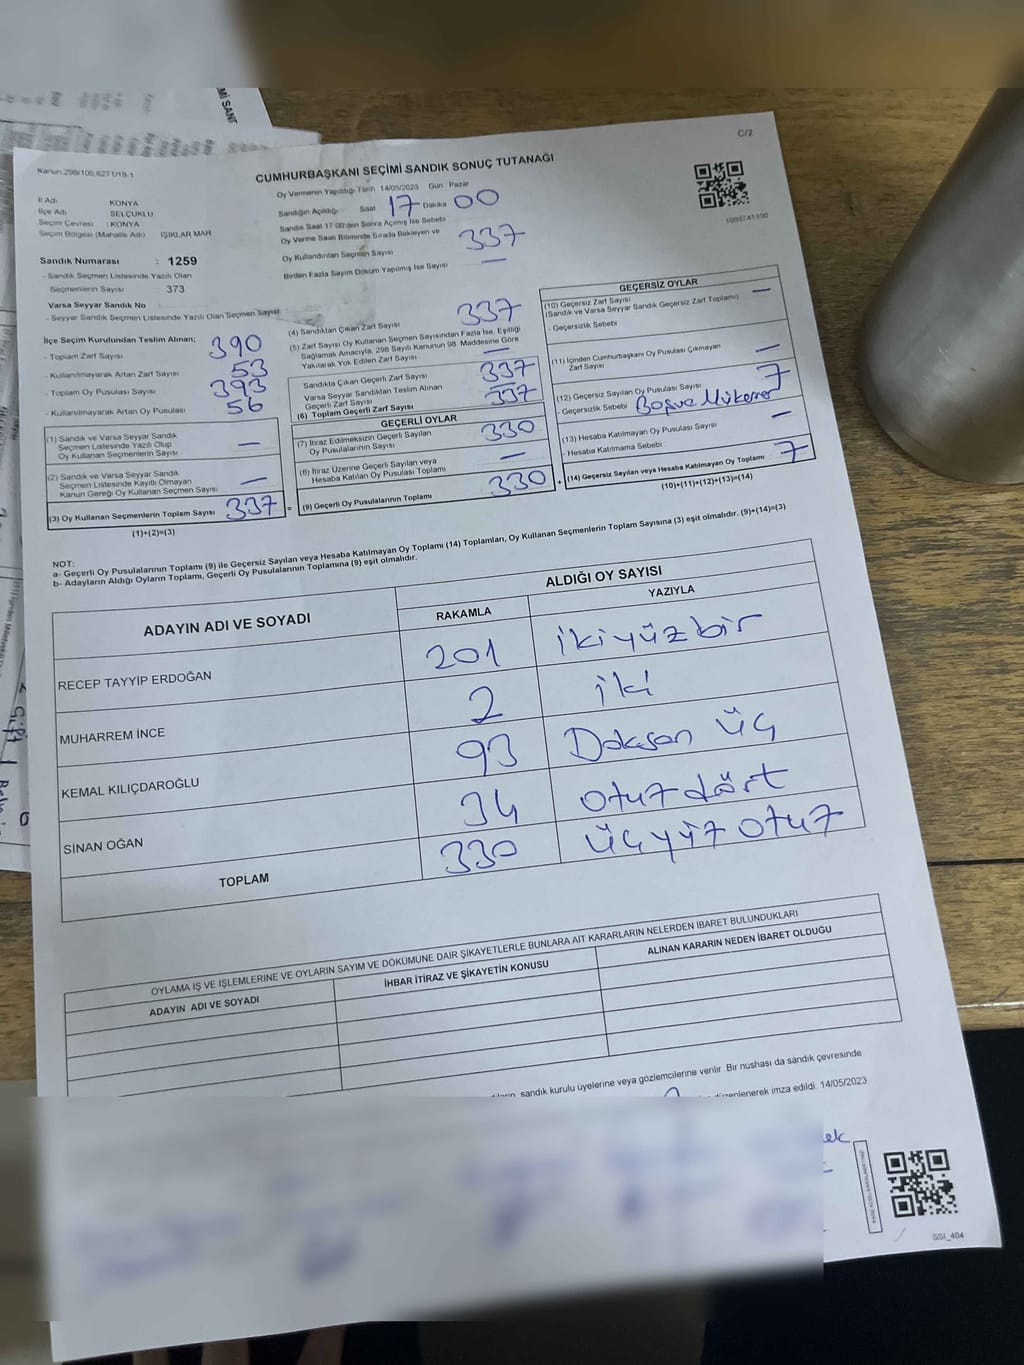 C/2
Kanun:298/105;6271/18-1
CUMHURBAŞKANI SEÇİMİ SANDIK SONUÇ TUTANAĞI
İl Adı : KONYA
İlçe Adı : SELÇUKLU
Seçim Çevresi : KONYA
Seçim Bölgesi (Mahalle Adı) : IŞIKLAR MAH
Oy Vermenin Yapıldığı Tarih 14/05/2023 Gün Pazar
Sandığın Açıldığı Saat 17 Dakika 00
Sandık Saat 17:00'den Sonra Açılmış İse Sebebi
Oy Verme Saati Bitiminde Sırada Bekleyen ve
Oy Kullandırılan Seçmen Sayısı 337
Birden Fazla Sayım Döküm Yapılmış İse Sayısı —
Sandık Numarası : 1259
- Sandık Seçmen Listesinde Yazılı Olan
Seçmenlerin Sayısı : 373
Varsa Seyyar Sandık No
- Seyyar Sandık Seçmen Listesinde Yazılı Olan Seçmen Sayısı
İlçe Seçim Kurulundan Teslim Alınan;
- Toplam Zarf Sayısı 390
- Kullanılmayarak Artan Zarf Sayısı 53
- Toplam Oy Pusulası Sayısı 393
- Kullanılmayarak Artan Oy Pusulası 56
(1) Sandık ve Varsa Seyyar Sandık
Seçmen Listesinde Yazılı Olup
Oy Kullanan Seçmenlerin Sayısı —
(2) Sandık ve Varsa Seyyar Sandık
Seçmen Listesinde Kayıtlı Olmayan
Kanun Gereği Oy Kullanan Seçmen Sayısı —
(3) Oy Kullanan Seçmenlerin Toplam Sayısı 337
(1)+(2)=(3)
(4) Sandıktan Çıkan Zarf Sayısı 337
(5) Zarf Sayısı Oy Kullanan Seçmen Sayısından Fazla İse, Eşitliği
Sağlamak Amacıyla, 298 Sayılı Kanunun 98. Maddesine Göre
Yakılarak Yok Edilen Zarf Sayısı —
Sandıkta Çıkan Geçerli Zarf Sayısı 337
Varsa Seyyar Sandıktan Teslim Alınan
Geçerli Zarf Sayısı —
(6) Toplam Geçerli Zarf Sayısı 337
GEÇERLİ OYLAR
(7) İtiraz Edilmeksizin Geçerli Sayılan
Oy Pusulalarının Sayısı 330
(8) İtiraz Üzerine Geçerli Sayılan veya
Hesaba Katılan Oy Pusulası Toplamı —
= (9) Geçerli Oy Pusulalarının Toplamı 330
GEÇERSİZ OYLAR
(10) Geçersiz Zarf Sayısı
(Sandık ve Varsa Seyyar Sandık Geçersiz Zarf Toplamı) —
- Geçersizlik Sebebi
(11) İçinden Cumhurbaşkanı Oy Pusulası Çıkmayan
Zarf Sayısı —
(12) Geçersiz Sayılan Oy Pusulası Sayısı 7
- Geçersizlik Sebebi Boş ve Mükerrer
(13) Hesaba Katılmayan Oy Pusulası Sayısı —
- Hesaba Katılmama Sebebi
+ (14) Geçersiz Sayılan veya Hesaba Katılmayan Oy Toplamı 7
(10)+(11)+(12)+(13)=(14)
NOT:
a- Geçerli Oy Pusulalarının Toplamı (9) ile Geçersiz Sayılan veya Hesaba Katılmayan Oy Toplamı (14) Toplamları, Oy Kullanan Seçmenlerin Toplam Sayısına (3) eşit olmalıdır. (9)+(14)=(3)
b- Adayların Aldığı Oyların Toplamı, Geçerli Oy Pusulalarının Toplamına (9) eşit olmalıdır.
ADAYIN ADI VE SOYADI
ALDIĞI OY SAYISI
RAKAMLA YAZIYLA
RECEP TAYYİP ERDOĞAN 201 ikiyüzbir
MUHARREM İNCE 2 iki
KEMAL KILIÇDAROĞLU 93 Doksan üç
SİNAN OĞAN 34 otuzdört
TOPLAM 330 üçyüz otuz
OYLAMA İŞ VE İŞLEMLERİNE VE OYLARIN SAYIM VE DÖKÜMÜNE DAİR ŞİKAYETLERLE BUNLARA AİT KARARLARIN NELERDEN İBARET BULUNDUKLARI
ADAYIN ADI VE SOYADI İHBAR İTİRAZ VE ŞİKAYETİN KONUSU ALINAN KARARIN NEDEN İBARET OLDUĞU
sandık kurulu üyelerine veya gözlemcilerine verilir. Bir nüshası da sandık çevresinde
düzenlenerek imza edildi. 14/05/2023
SSI_404